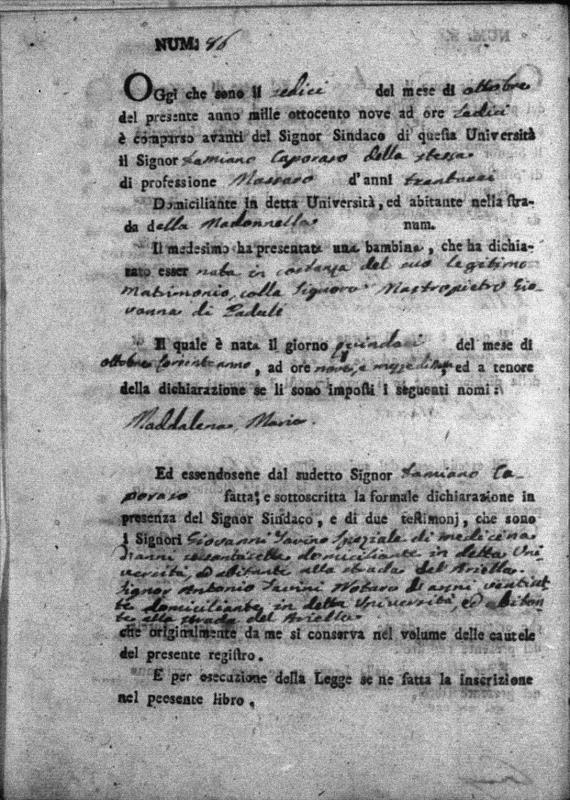 NUM: 86
OGgi che sono li sedici del mese di ottobre
del presente anno mille ottocento nove ad ore sedici
è comparso avanti del Signor Sindaco di questa Università
il Signor Damiano Caporaso della stessa
di professione Massaro d'anni trentasei
Domiciliante in detta Università, ed abitante nella stra-
da della Madonnella num.
Il medesimo ha presentata una bambina, che ha dichia-
rato esser nata in costanza del suo legitimo
matrimonio, colla Signora Mastropietro Gio-
vanna di Paduli
Il quale è nata il giorno quindici del mese di
ottobre corrente anno, ad ore nove, e mezzo ed a tenore
della dichiarazione se li sono imposti i seguenti nomi:
Maddalena, Maria.
Ed essendosene dal sudetto Signor Damiano Ca-
poraso fatta; e sottoscritta la formale dichiarazione in
presenza del Signor Sindaco, e di due testimonj, che sono
i Signori Giovanni Iavino Speziale di medicina
d'anni sessantasette domiciliante in detta Uni-
versità, ed abitante alla strada del Ariella.
Signor Antonio Iavini Notaro d'anni ventiset
te domiciliante in detta Università, ed abitan
te alla strada del Ariella
che originalmente da me si conserva nel volume delle cautele
del presente registro.
E per esecuzione della Legge se ne fatta la inscrizione
nel peesente libro.